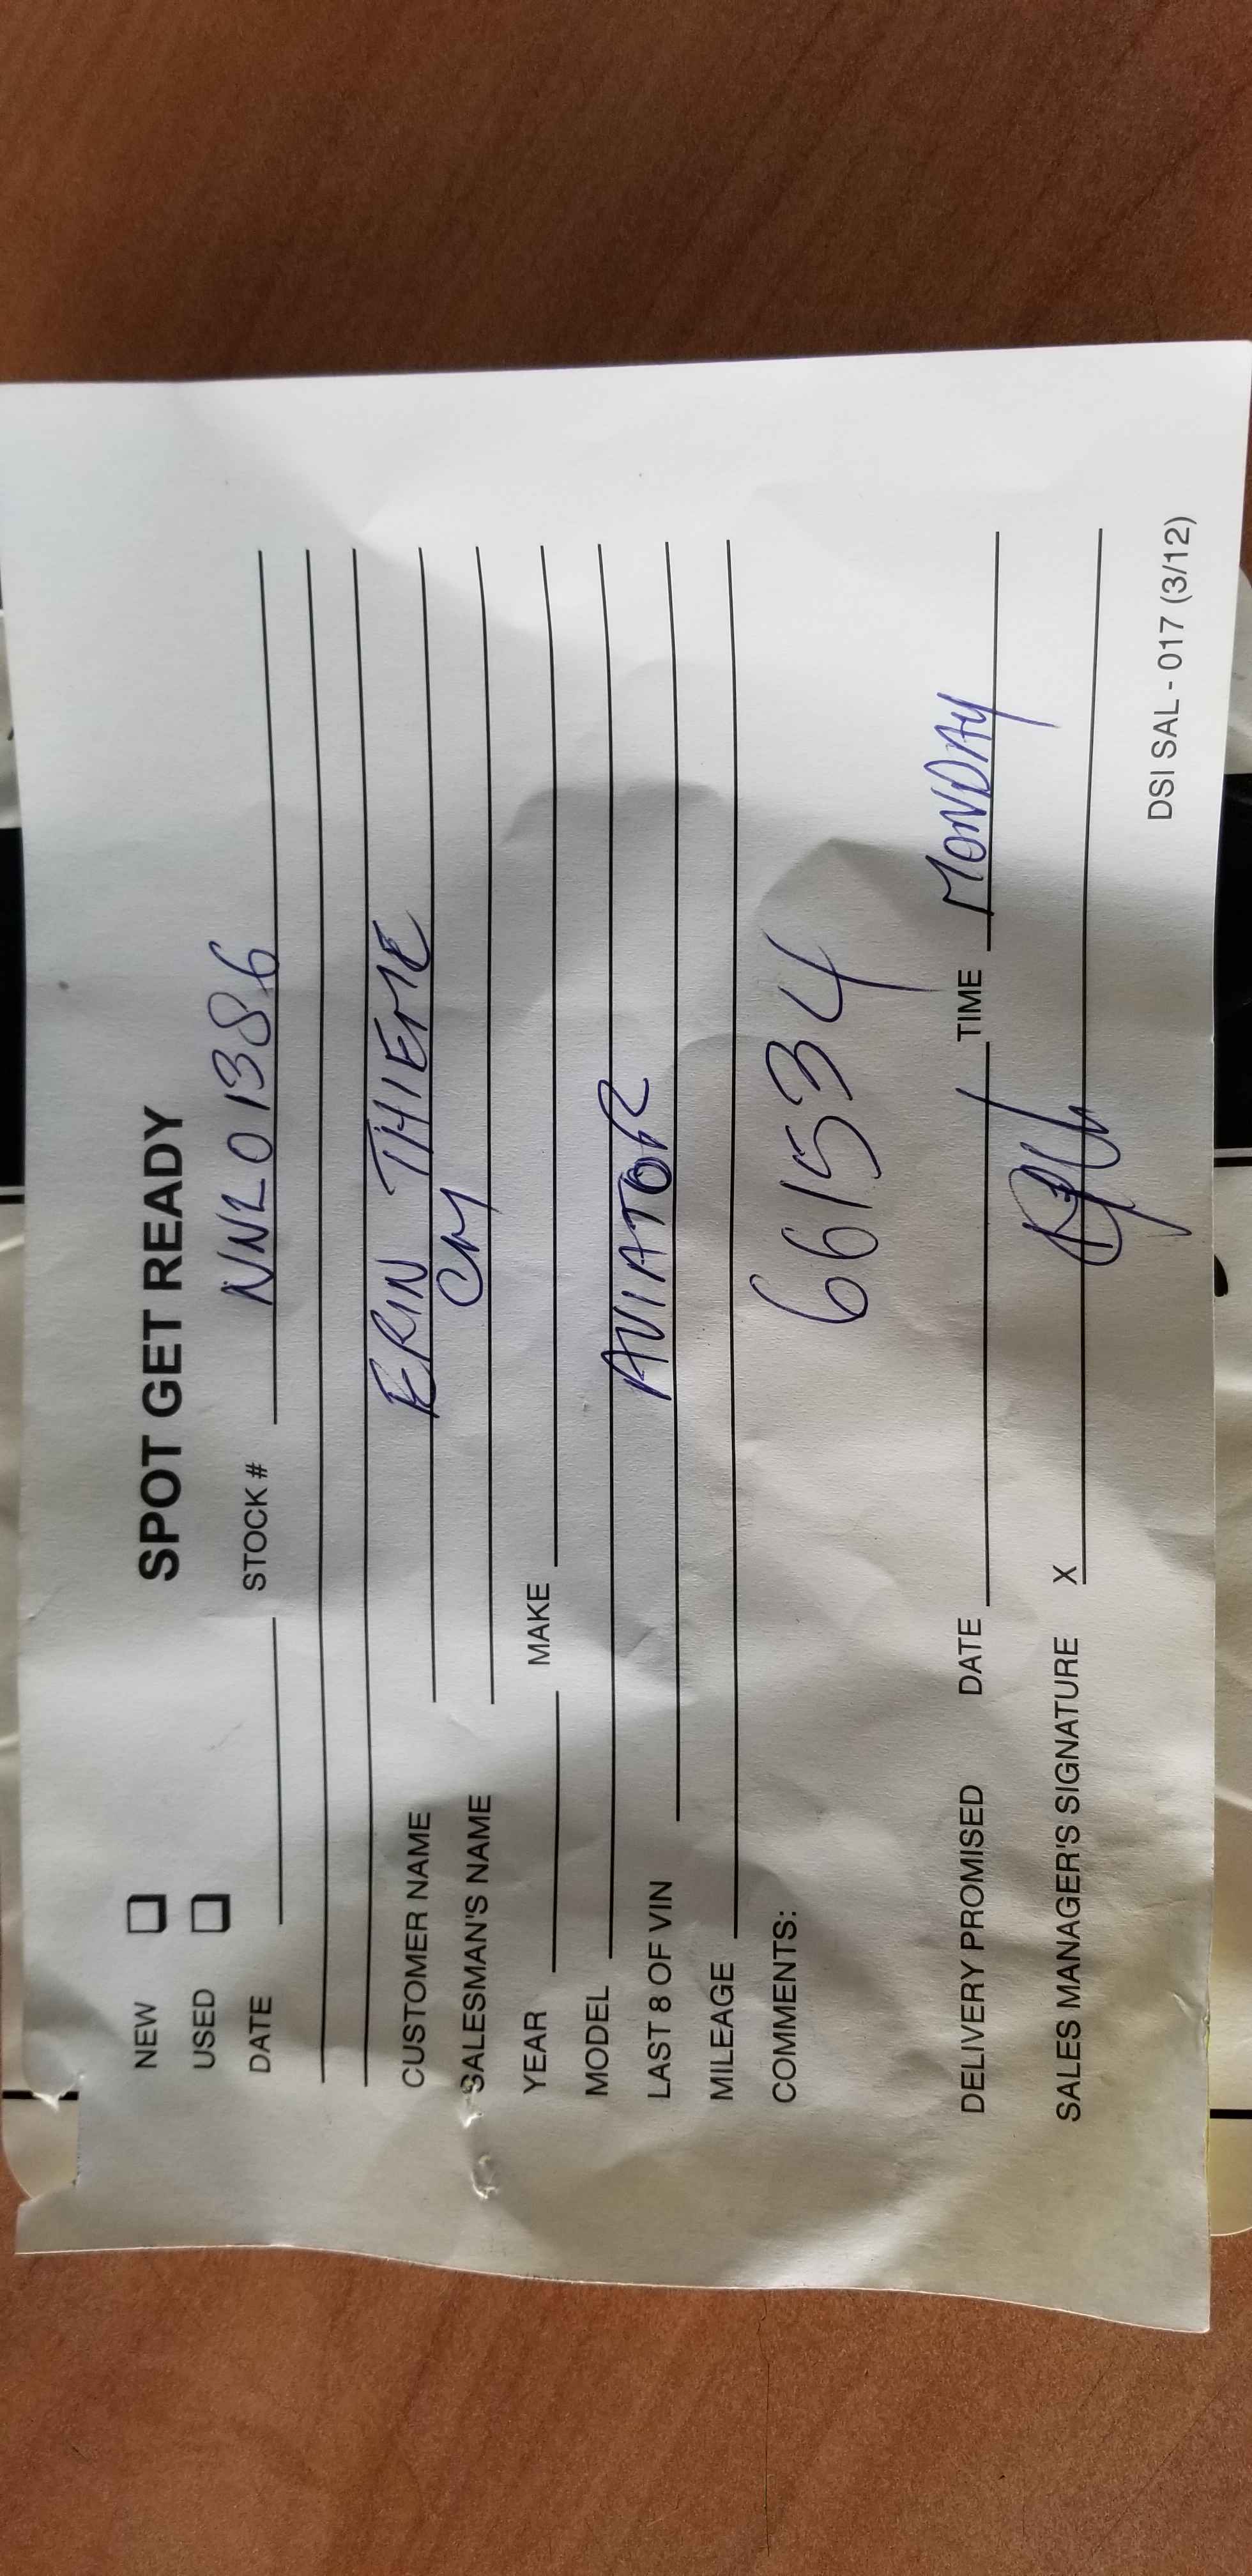 SPOT GET READY
NEW
USED
DATE STOCK # NNL01386
CUSTOMER NAME ERIN THIEME
SALESMAN'S NAME CM
YEAR MAKE
MODEL AVIATOR
LAST 8 OF VIN
MILEAGE
COMMENTS: 661534
DELIVERY PROMISED DATE TIME MONDAY
SALES MANAGER'S SIGNATURE X
DSI SAL - 017 (3/12)